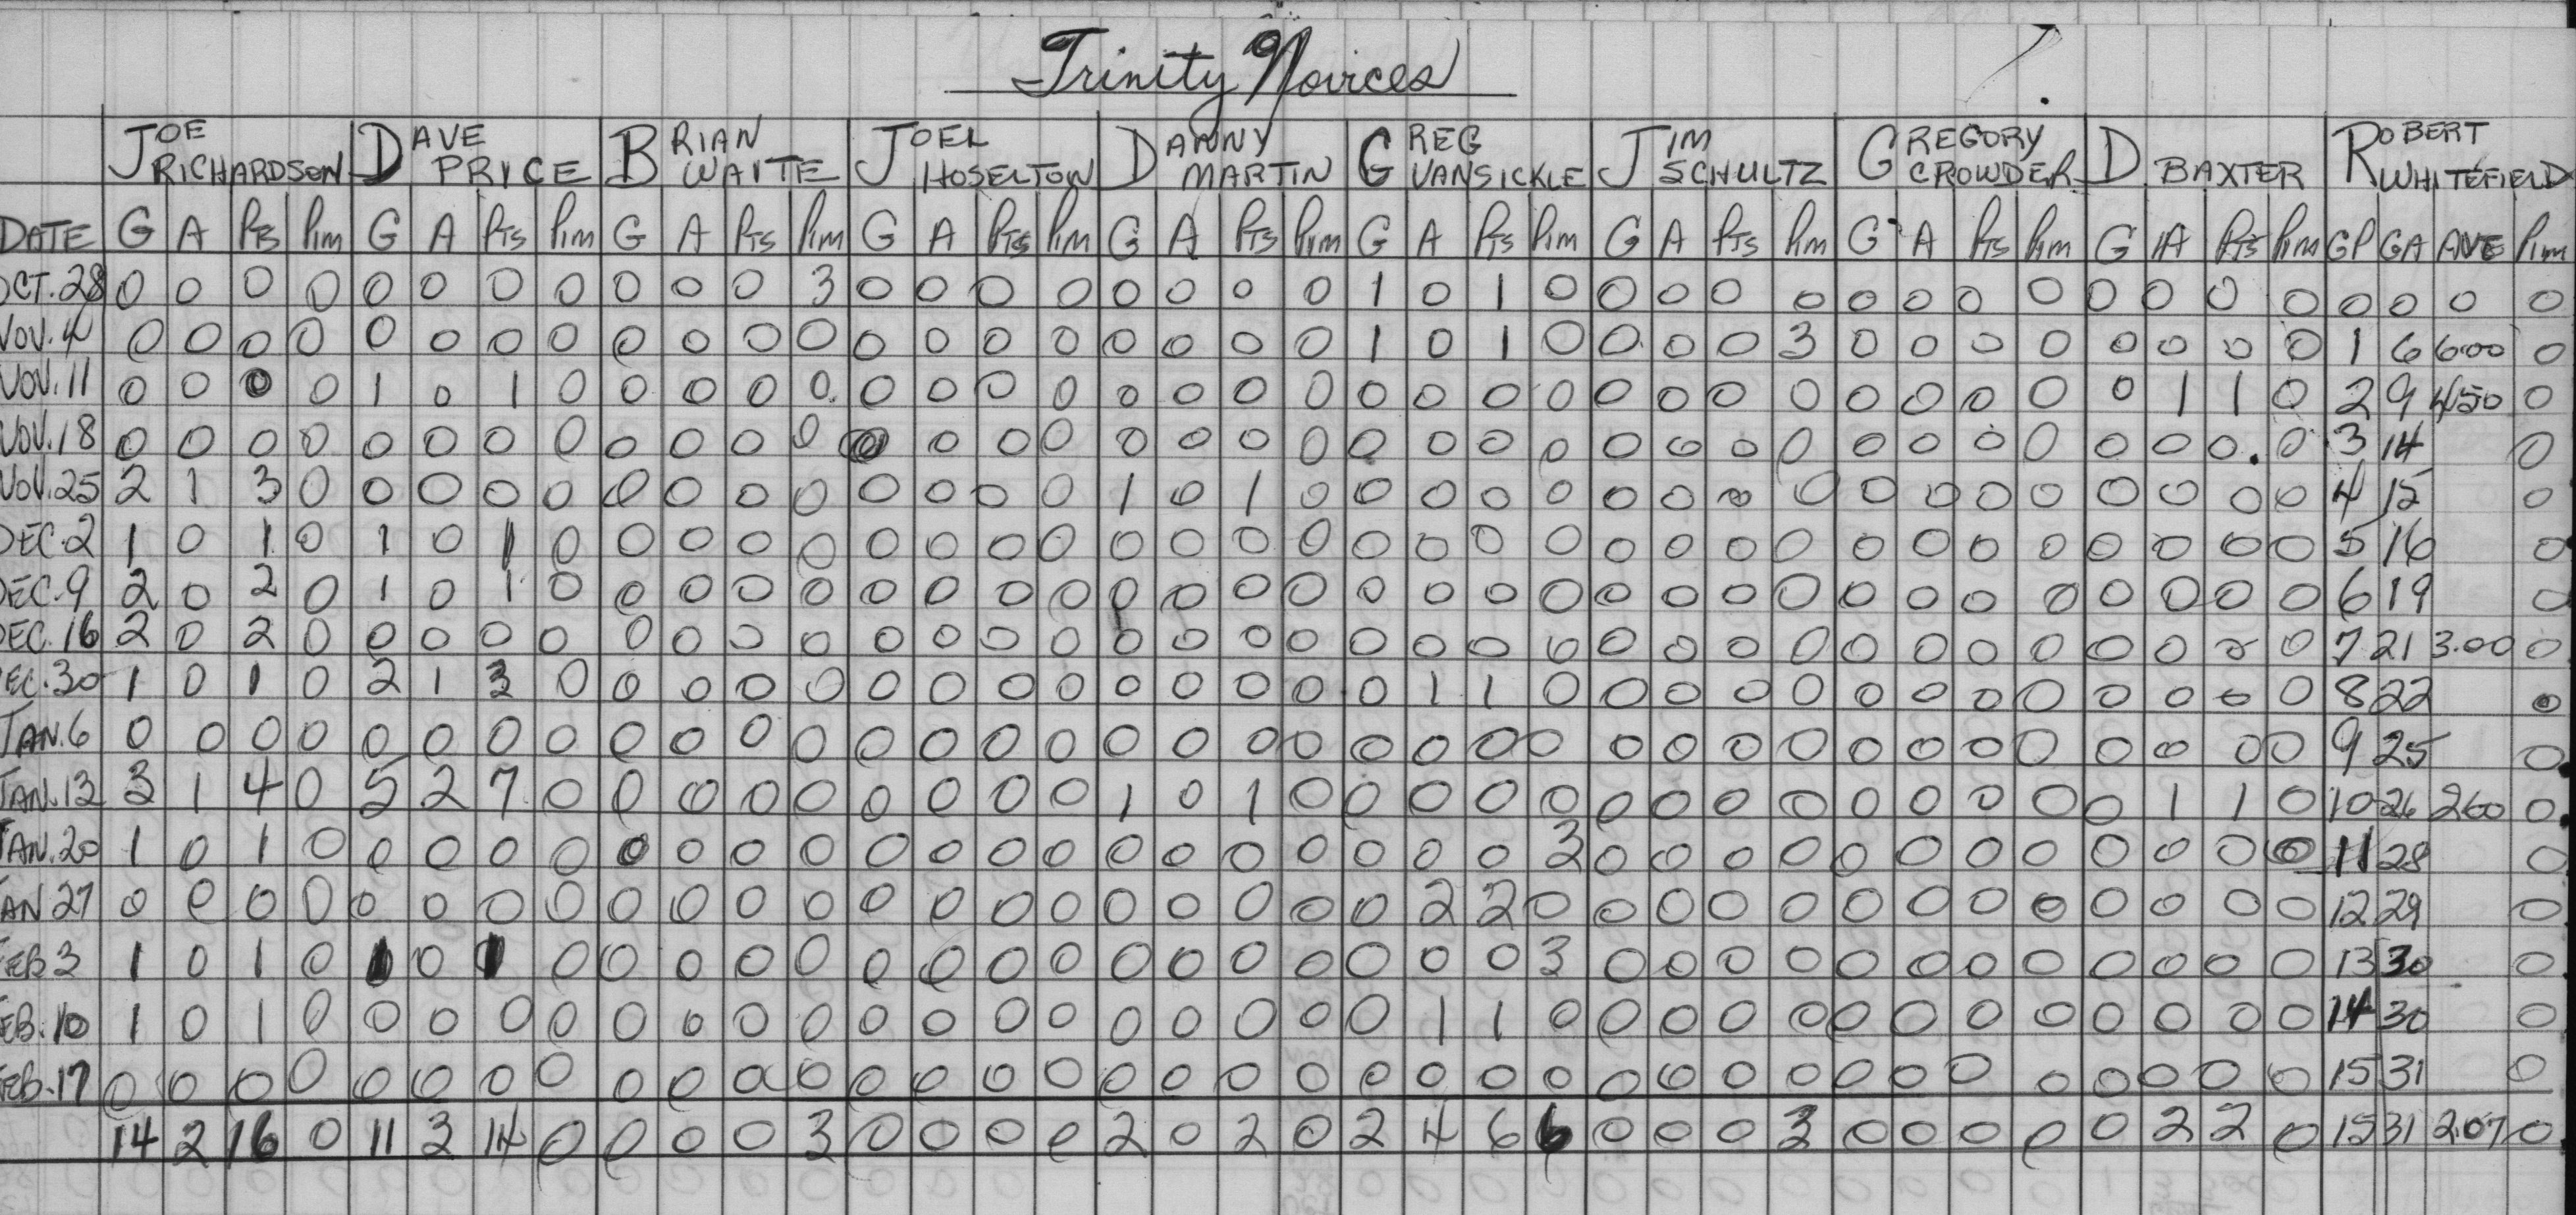 Trinity Novices
JOE RICHARDSON DAVE PRICE BRIAN WAITE JOEL HOSELTON DANNY MARTIN GREG VANSICKLE JIM SCHULTZ GREGORY CROWDER D BAXTER ROBERT WHITEFIELD
DATE G A Pts Pim G A Pts Pim G A Pts Pim G A Pts Pim G A Pts Pim G A Pts Pim G A Pts Pim G A Pts Pim G A Pts Pim GP GA AVE Pim
OCT. 28 0 0 0 0 0 0 0 0 0 0 0 3 0 0 0 0 0 0 0 0 1 0 1 0 0 0 0 0 0 0 0 0 0 0 0 0 0 0 0 0
NOV. 4 0 0 0 0 0 0 0 0 0 0 0 0 0 0 0 0 0 0 0 0 1 0 1 0 0 0 0 3 0 0 0 0 0 0 0 0 1 6 6.00 0
NOV. 11 0 0 0 0 1 0 1 0 0 0 0 0 0 0 0 0 0 0 0 0 0 0 0 0 0 0 0 0 0 0 0 0 0 1 1 0 2 9 4.50 0
NOV. 18 0 0 0 0 0 0 0 0 0 0 0 0 0 0 0 0 0 0 0 0 0 0 0 0 0 0 0 0 0 0 0 0 0 0 0 0 3 14 0
NOV. 25 2 1 3 0 0 0 0 0 0 0 0 0 0 0 0 0 1 0 1 0 0 0 0 0 0 0 0 0 0 0 0 0 0 0 0 0 4 15 0
DEC. 2 1 0 1 0 1 0 1 0 0 0 0 0 0 0 0 0 0 0 0 0 0 0 0 0 0 0 0 0 0 0 0 0 0 0 0 0 5 16 0
DEC. 9 2 0 2 0 1 0 1 0 0 0 0 0 0 0 0 0 0 0 0 0 0 0 0 0 0 0 0 0 0 0 0 0 0 0 0 0 6 19 0
DEC. 16 2 0 2 0 0 0 0 0 0 0 0 0 0 0 0 0 0 0 0 0 0 0 0 0 0 0 0 0 0 0 0 0 0 0 0 0 7 21 3.00 0
DEC. 30 1 0 1 0 2 1 3 0 0 0 0 0 0 0 0 0 0 0 0 0 0 1 1 0 0 0 0 0 0 0 0 0 0 0 0 0 8 22 0
JAN. 6 0 0 0 0 0 0 0 0 0 0 0 0 0 0 0 0 0 0 0 0 0 0 0 0 0 0 0 0 0 0 0 0 0 0 0 0 9 25 0
JAN. 13 3 1 4 0 5 2 7 0 0 0 0 0 0 0 0 0 1 0 1 0 0 0 0 0 0 0 0 0 0 0 0 0 0 1 1 0 10 26 2.60 0
JAN. 20 1 0 1 0 0 0 0 0 0 0 0 0 0 0 0 0 0 0 0 0 0 0 0 3 0 0 0 0 0 0 0 0 0 0 0 0 11 28 0
JAN 27 0 0 0 0 0 0 0 0 0 0 0 0 0 0 0 0 0 0 0 0 0 2 2 0 0 0 0 0 0 0 0 0 0 0 0 0 12 29 0
FEB 3 1 0 1 0 1 0 1 0 0 0 0 0 0 0 0 0 0 0 0 0 0 0 0 3 0 0 0 0 0 0 0 0 0 0 0 0 13 30 0
FEB. 10 1 0 1 0 0 0 0 0 0 0 0 0 0 0 0 0 0 0 0 0 0 1 1 0 0 0 0 0 0 0 0 0 0 0 0 0 14 30 0
FEB. 17 0 0 0 0 0 0 0 0 0 0 0 0 0 0 0 0 0 0 0 0 0 0 0 0 0 0 0 0 0 0 0 0 0 0 0 0 15 31 0
14 2 16 0 11 3 14 0 0 0 0 3 0 0 0 0 2 0 2 0 2 4 6 6 0 0 0 3 0 0 0 0 0 2 2 0 15 31 2.07 0